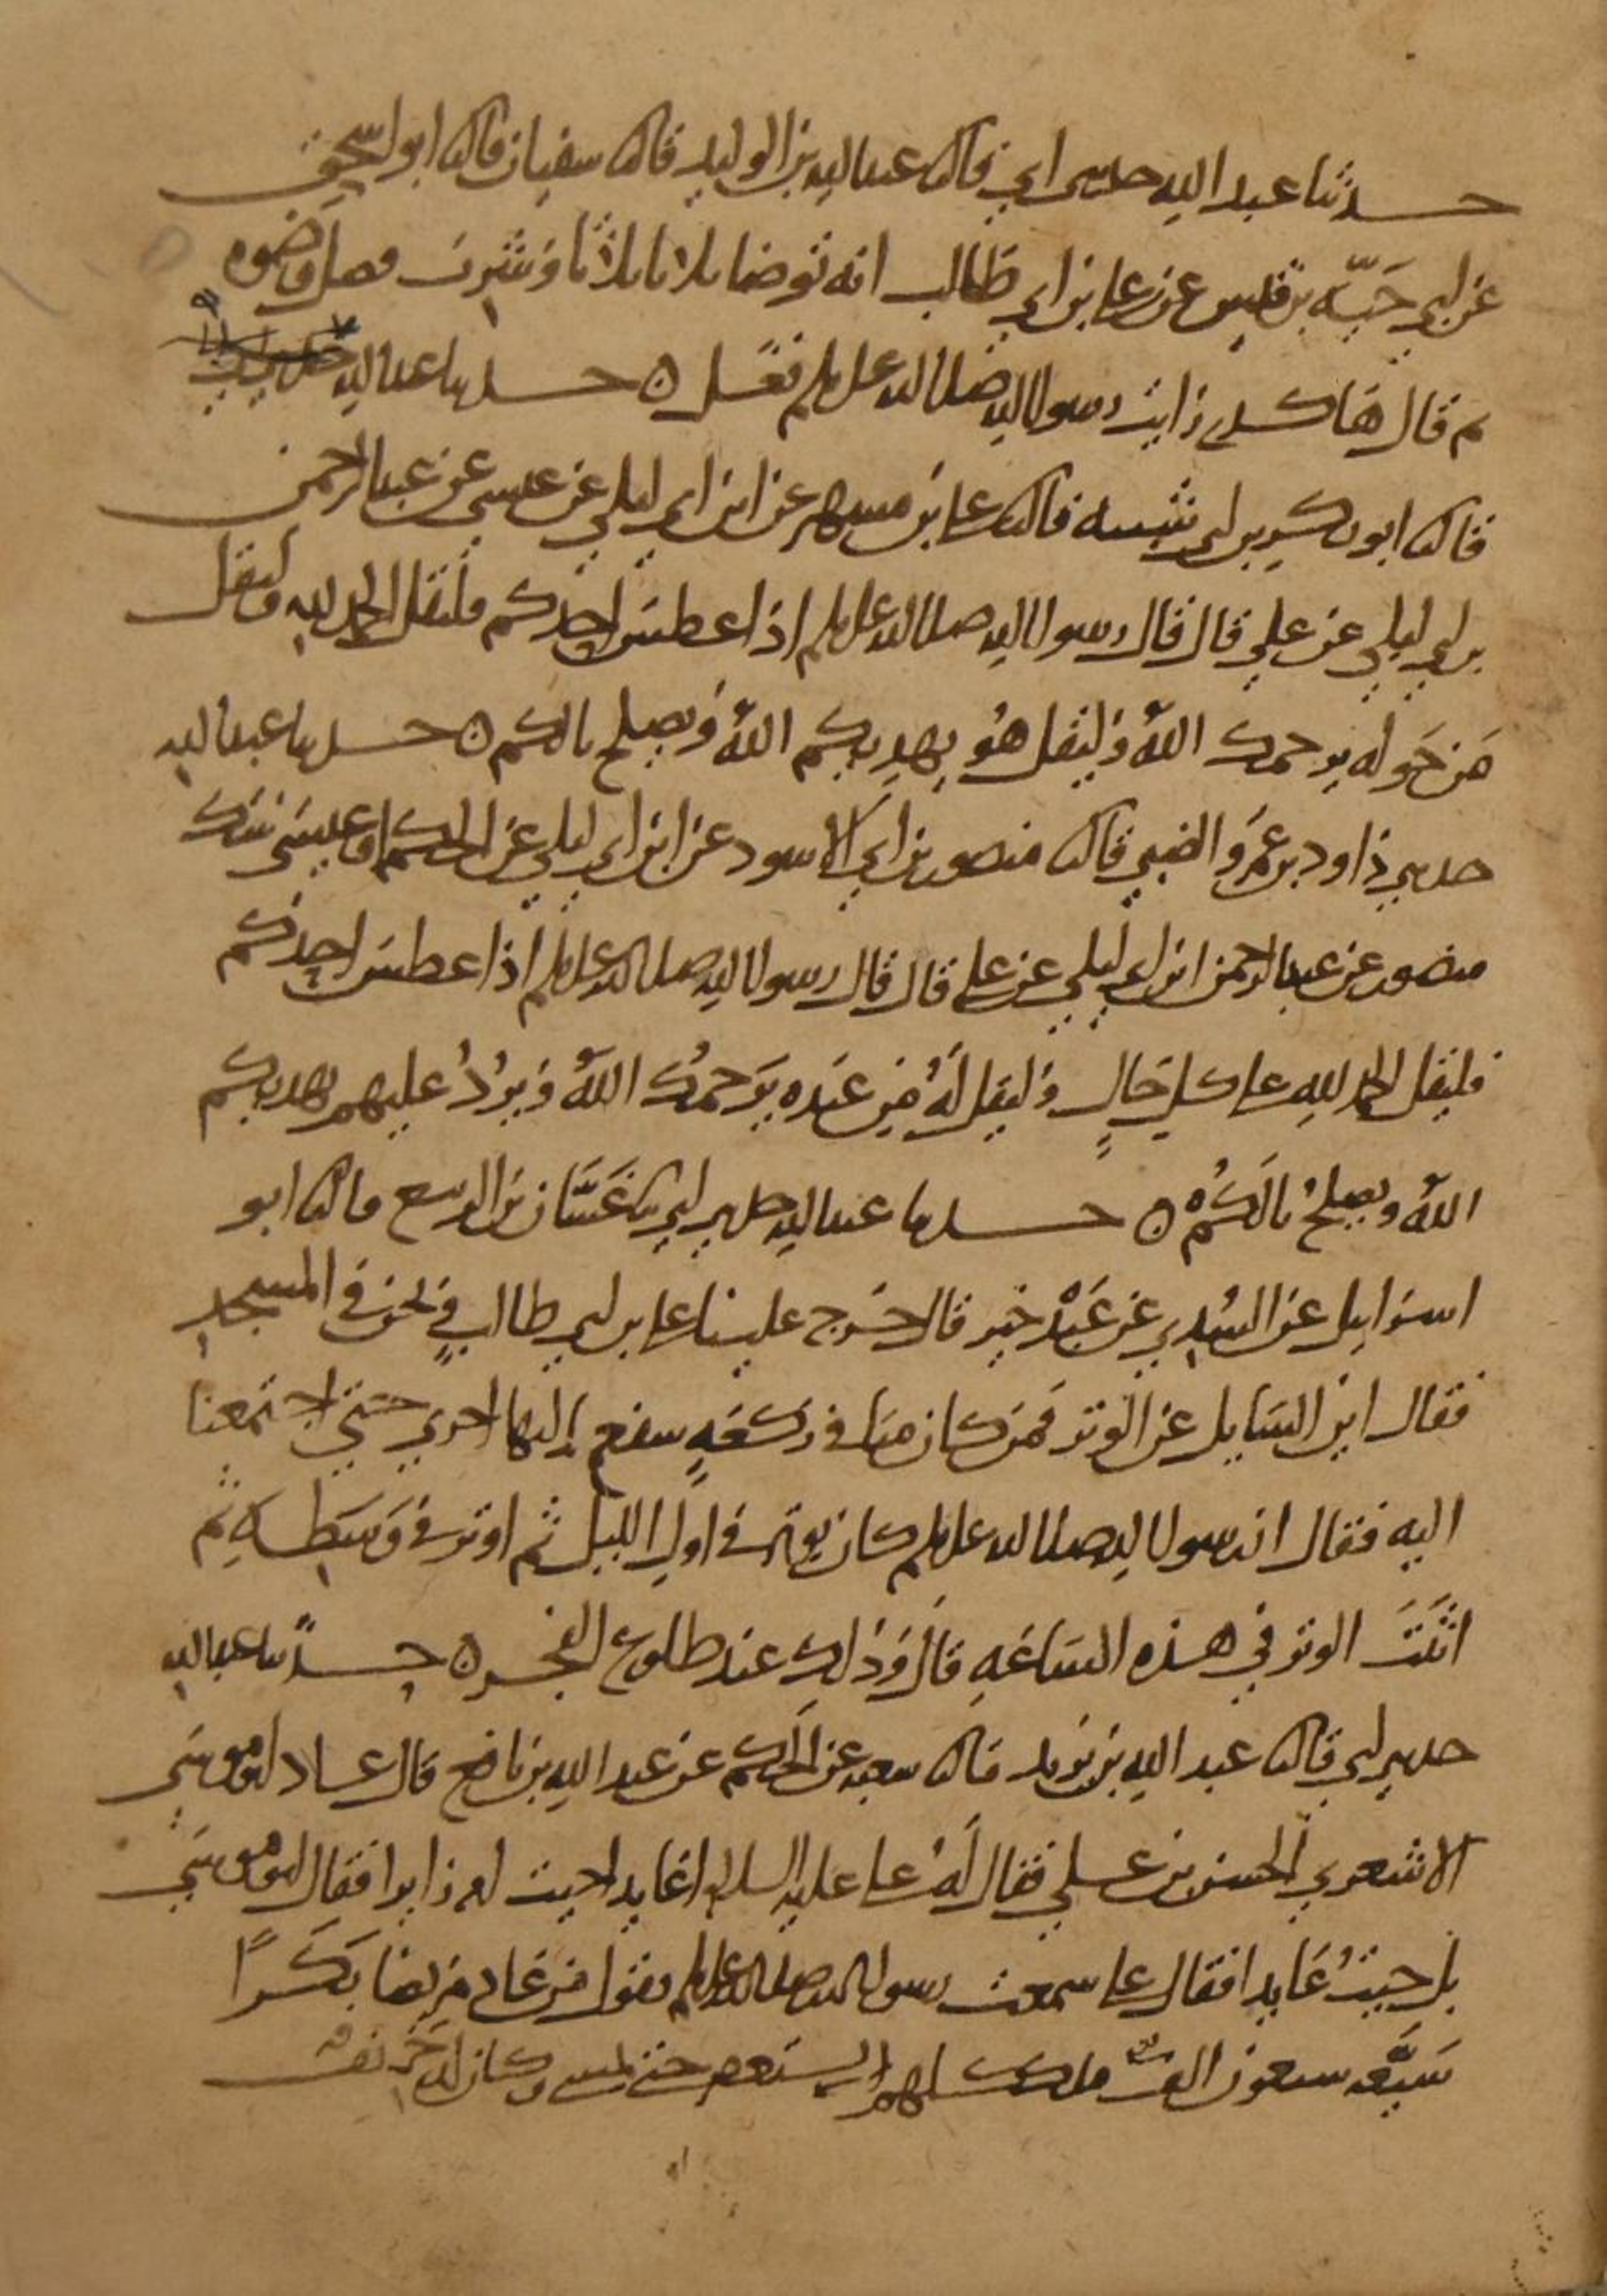 حدثنا عبد الله حدثني ابي قال ثنا عبد الله بن الوليد قال ثنا سفيان قال ثنا ابو اسحق
عن ابي حية بن قيس عن علي بن ابي طالب انه توضا ثلاثا ثلاثا وشرب فضل وضوه
ثم قال هاكذي رايت رسول الله صلى الله عليه وسلم فعل ه حدثنا عبد الله
قال ثنا ابو بكر بن ابي شيبه قال ثنا علي بن مسهر عن ابن ابي ليلي عن عيسي عن عبد الرحمن
بن ابي ليلي عن علي قال قال رسول الله صلى الله عليه وسلم اذا عطس احدكم فليقل الحمد لله وليقل
من حوله يرحمك الله وليقل هو يهديكم الله ويصلح بالكم ه حدثنا عبد الله
حدثني داود بن عمرو الضبي قال ثنا منصور بن ابي الاسود عن ابن ابي ليلي عن الحكم او عيسي شك
منصور عن عبد الرحمن ابن ابي ليلي عن علي قال قال رسول الله صلى الله عليه وسلم اذا عطس احدكم
فليقل الحمد لله على كل حال وليقل له من عنده يرحمك الله ويرد عليهم يهديكم
الله ويصلح بالكم ه حدثنا عبد الله حدثني ابي ثنا غسان بن الربيع قال ثنا ابو
اسرايل عن السدي عن عبد خير قال خرج علينا علي بن ابي طالب ونحن في المسجد
فقال اين السايل عن الوتر فمن كان منا في ركعه شفع اليها اخري حتي اجتمعنا
اليه فقال ان رسول الله صلى الله عليه وسلم كان يوتر في اول الليل ثم اوتر في وسطه ثم
اثبت الوتر في هذه الساعه قال وذلك عند طلوع الفجر ه حدثنا عبد الله
حدثني ابي قال ثنا عبد الله بن يزيد قال ثنا شعبه عن الحكم عن عبد الله بن نافع قال عاد ابو موسي
الاشعري الحسن بن علي فقال له علي عليه السلام اعايدا جيت ام زايرا فقال ابو موسي
بل جيت عايدا فقال علي سمعت رسول الله صلى الله عليه وسلم يقول من عاد مريضا بكرا
شيعه سبعون الف ملك كلهم يستغفر حتى يمسي وكان له خريف